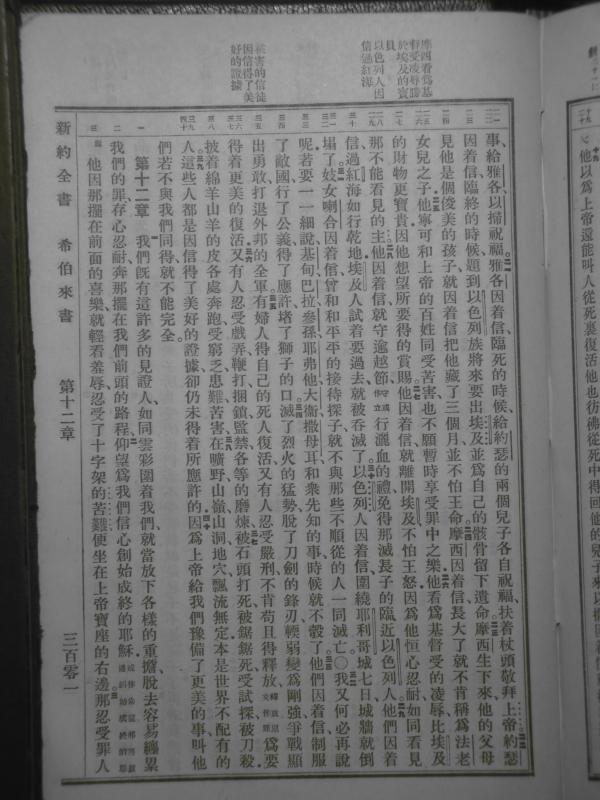 摩西看爲基
督受凌辱勝
於埃及的寶
以色列人因
信過紅海
被害的信徒
因信得了美
好的證據
事給雅各以掃祝福雅各因着信臨死的時候給約瑟的兩個兒子各自祝福扶着杖頭敬拜上帝約瑟
因着信臨終的時候題到以色列族將來要出埃及並爲自己的骸骨留下遺命摩西生下來他的父母
見他是個俊美的孩子就因着信把他藏了三個月並不怕王命摩西因着信長大了就不肯稱爲法老
女兒之子他寧可和上帝的百姓同受苦害也不願暫時享受罪中之樂他看爲基督受的凌辱比埃及
的財物更寶貴因他想望所要得的賞賜他因着信就離開埃及不怕王怒因爲他恒心忍耐如同看見
那不能看見的主他因着信就守逾越節行灑血的禮免得那滅長子的臨近以色列人他們因着
信過紅海如行乾地埃及人試着要過去就被吞滅了以色列人因着信圍繞耶利哥城七日城牆就倒
塌了妓女喇合因着信曾和和平平的接待探子就不與那些不順從的人一同滅亡〇我又何必再說
呢若要一一細說基甸巴拉參孫耶弗他大衞撒母耳和衆先知的事時候就不彀了他們因着信制服
了敵國行了公義得了應許堵了獅子的口滅了烈火的猛勢脫了刀劍的鋒刃輭弱變爲剛強爭戰顯
出勇敢打退外邦的全軍有婦人得自己的死人復活又有人忍受嚴刑不肯苟且得釋放爲要
得着更美的復活又有人忍受戲弄鞭打捆鎖監禁各等的磨煉被石頭打死被鋸鋸死受試探被刀殺
披着綿羊山羊的皮各處奔跑受窮乏患難苦害在曠野山嶺山洞地穴飄流無定本是世界不配有的
人這些人都是因信得了美好的證據卻仍未得着所應許的因爲上帝給我們豫備了更美的事叫他
們若不與我們同得就不能完全
第十二章 我們旣有這許多的見證人如同雲彩圍着我們就當放下各樣的重擔脫去容易纏累
我們的罪存心忍耐奔那擺在我們前頭的路程仰望爲我們信心創始成終的耶穌
他因那擺在前面的喜樂就輕看羞辱忍受了十字架的苦難便坐在上帝寶座的右邊那忍受罪人
新約全書 希伯來書 第十二章 三百零一
他以爲上帝還能叫人從死裏復活他也彷彿從死中得回他的兒子來